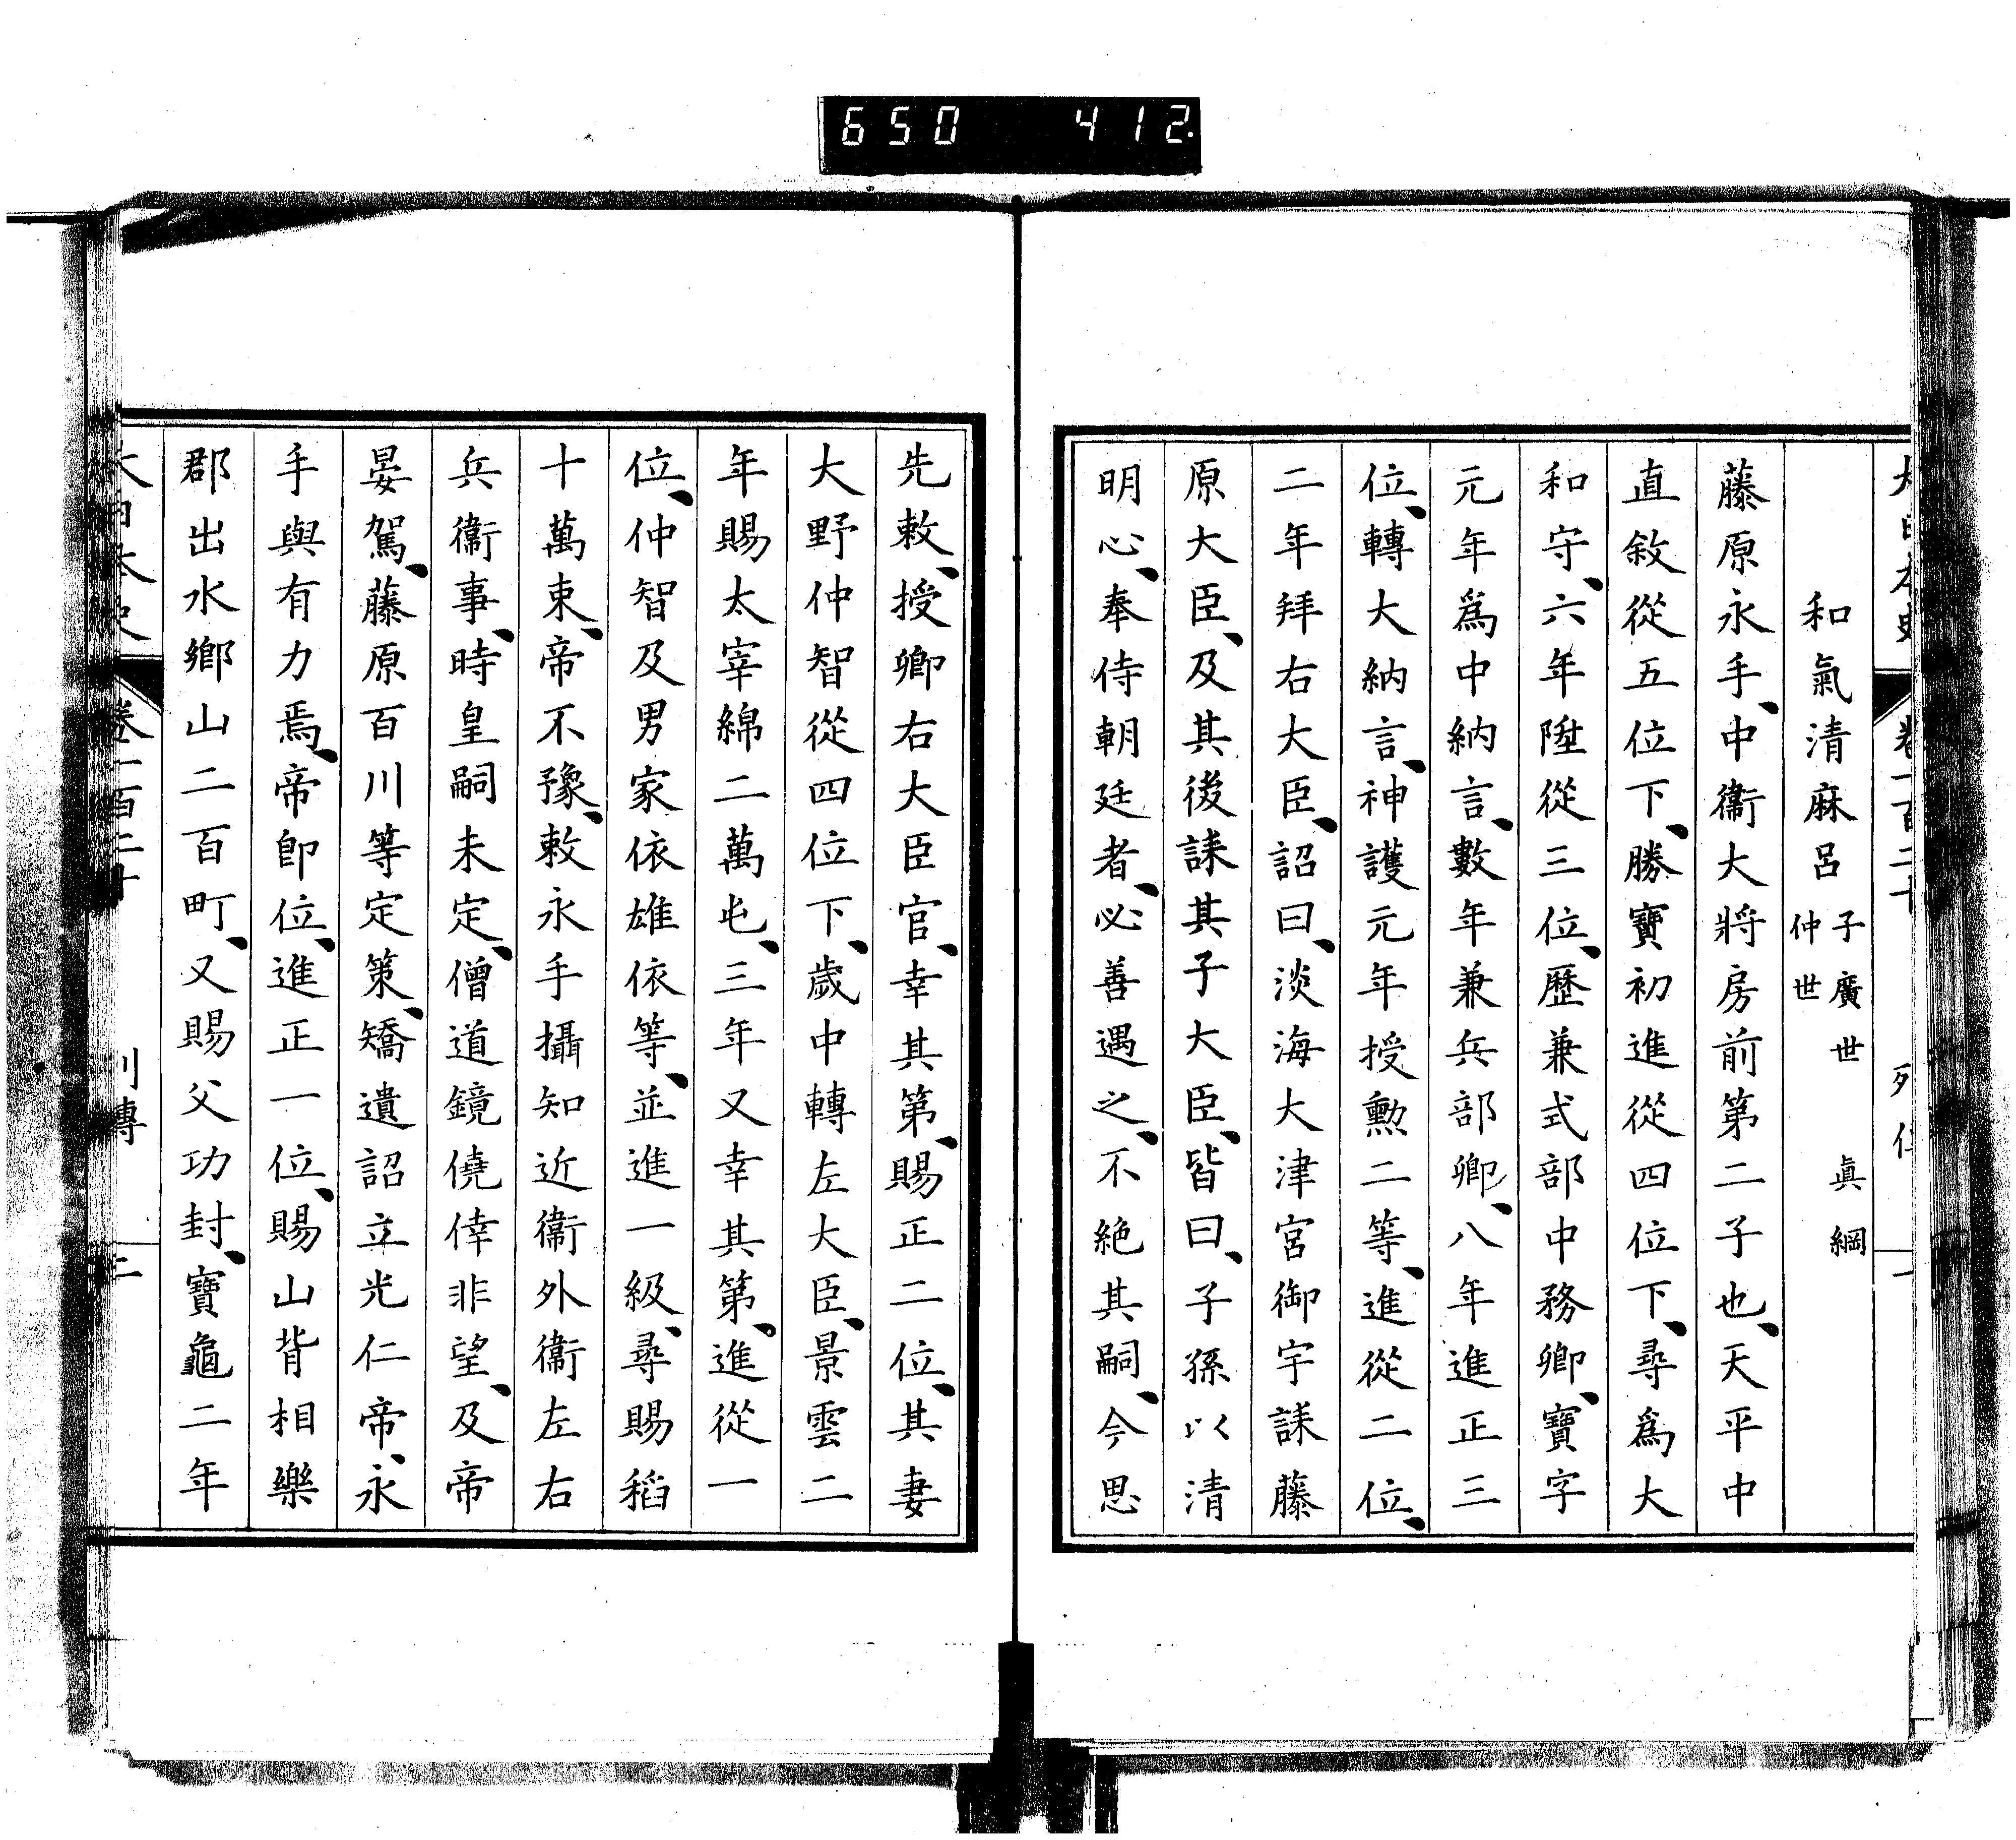 650 412.
大日本史 卷一百二十 列傳 一
和氣清麻呂 子廣世 眞綱
仲世
藤原永手、中衞大將房前第二子也、天平中
直敘從五位下、勝寶初進從四位下、尋爲大
和守、六年陞從三位、歷兼式部中務卿、寶字
元年爲中納言、數年兼兵部卿、八年進正三
位、轉大納言、神護元年授勲二等、進從二位、
二年拜右大臣、詔曰、淡海大津宮御宇誄藤
原大臣、及其後誄其子大臣、皆曰、子孫以清
明心、奉侍朝廷者、必善遇之、不絶其嗣、今思
先敕、授卿右大臣官、幸其第、賜正二位、其妻
大野仲智從四位下、歲中轉左大臣、景雲二
年賜太宰綿二萬屯、三年又幸其第、進從一
位、仲智及男家依雄依等、並進一級、尋賜稻
十萬束、帝不豫、敕永手攝知近衞外衞左右
兵衞事、時皇嗣未定、僧道鏡僥倖非望、及帝
晏駕、藤原百川等定策、矯遺詔立光仁帝、永
手與有力焉、帝卽位、進正一位、賜山背相樂
郡出水鄉山二百町、又賜父功封、寶龜二年
大日本史 卷一百二十 列傳 二